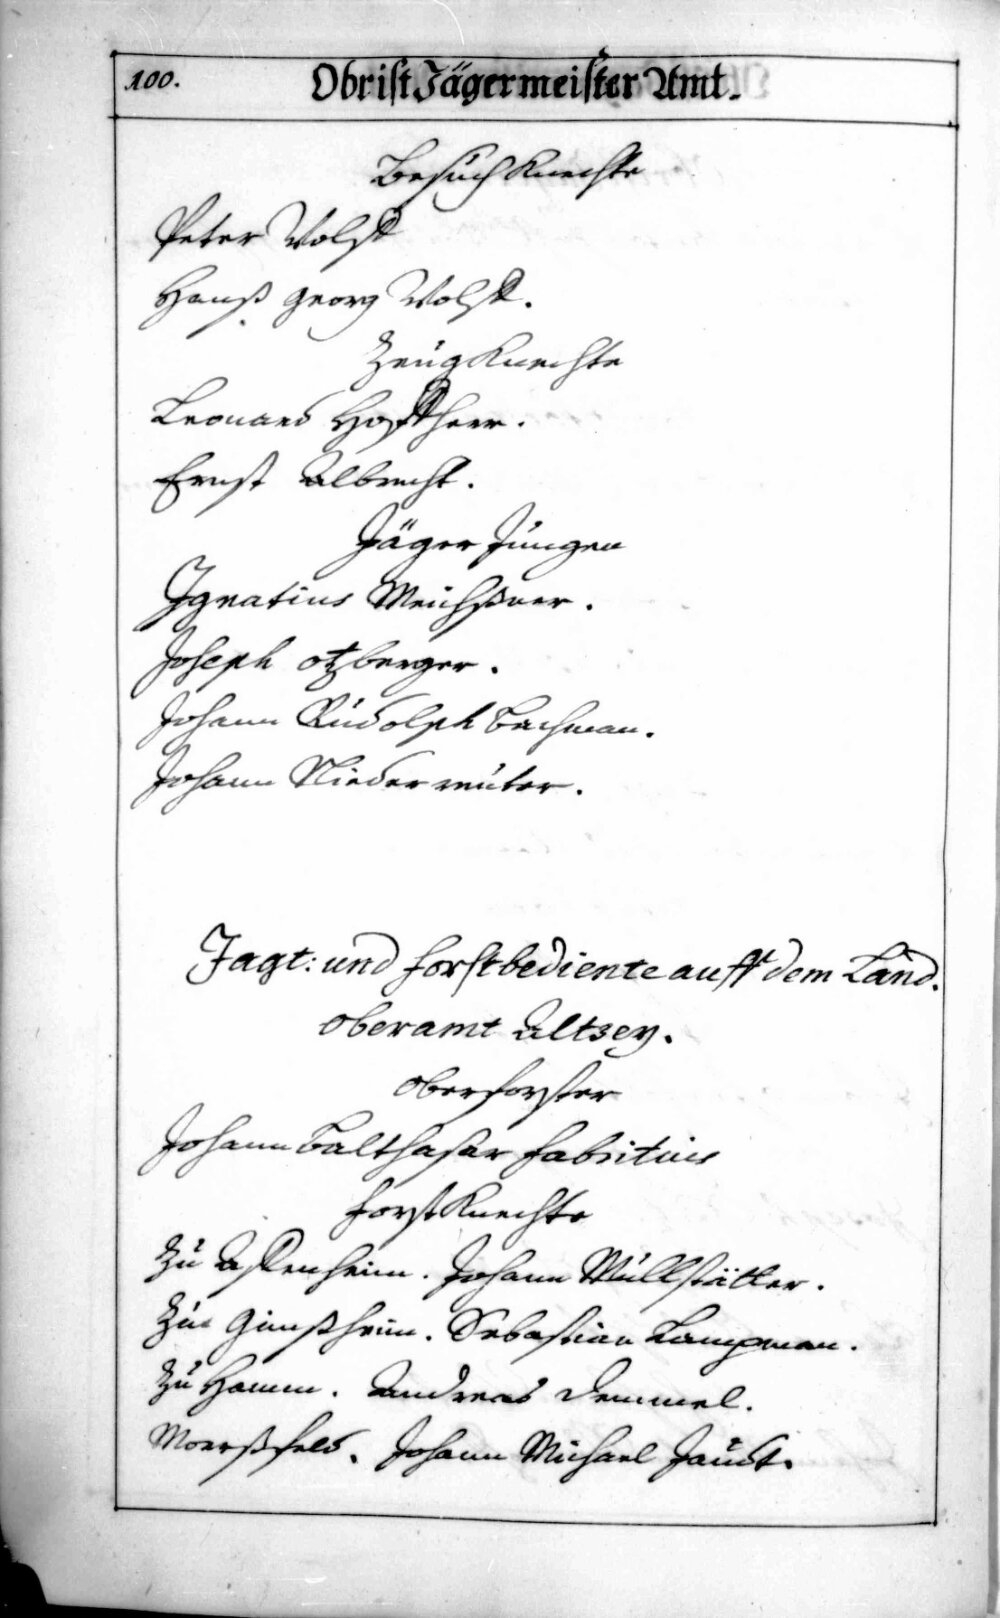 100. Obrist Jägermeister Amt.
Besuch Knechte
Peter Volst
Hanß Georg Volst.
Zeug Knechte
Leonard
Ernst Albrecht.
Jäger Jungen
Ignatius Meichsner.
Joseph otzberger.
Johann Rudolph Bachman.
Johann Niedermeüter.
Jagt: und forstbediente auff dem Land.
oberamt Altzey.
oberforster
Johann Balthasar fabritius
forst Knechte
Zu Johann Müllstätter.
Zu Gimßheim. Sebastian Lampman.
Zu Hamm. Andreas Demmel.
Moersfeld. Johann Michael